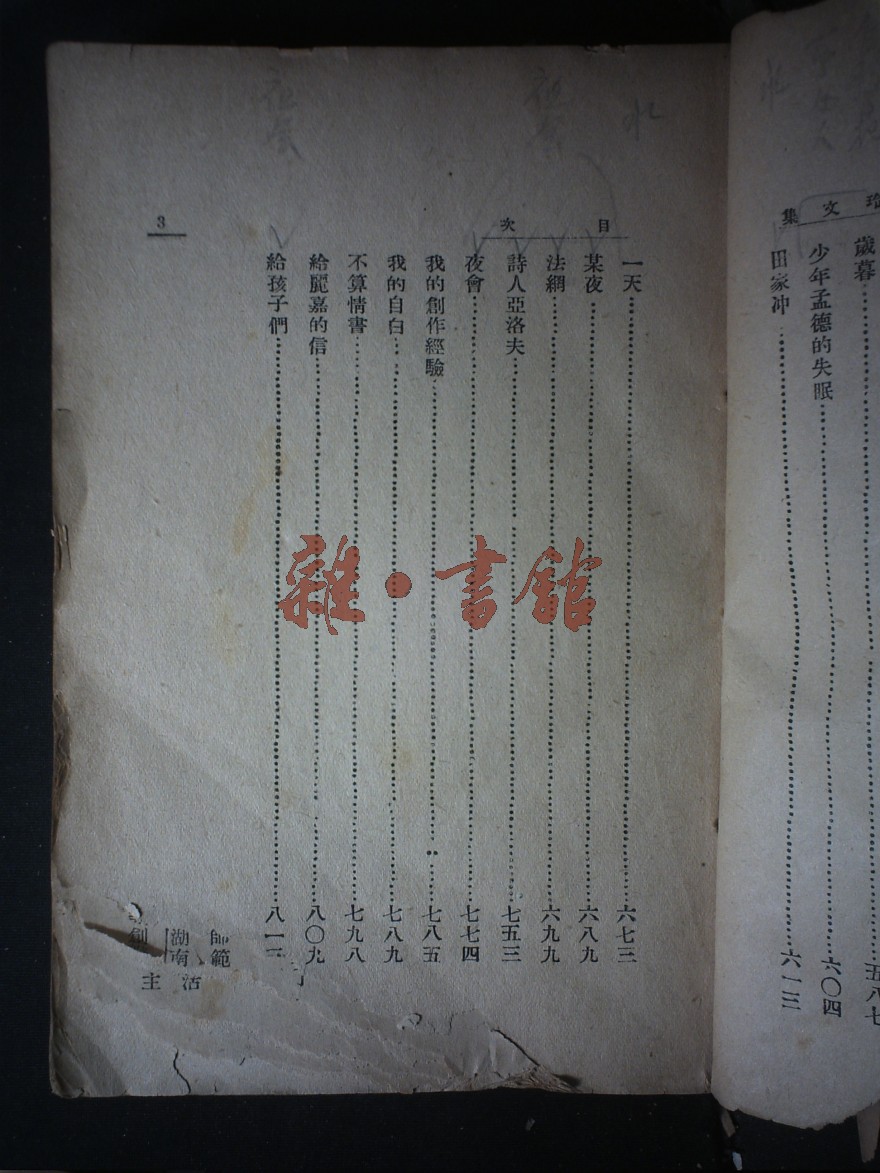 文集
歲暮……五八七
少年孟德的失眠……六〇四
田家冲……六一三
目次
一天……六七三
某夜……六八九
法網……六九九
詩人亞洛夫……七五三
夜會……七七四
我的創作經驗……七八五
我的自白……七八九
不算情書……七九八
給麗嘉的信……八〇九
給孩子們……八一
3
雜·書館
師範
湖南
創
主活
水